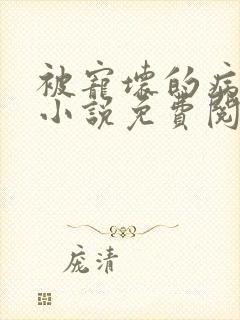 被寵壞的病
小說免費閱
庞清